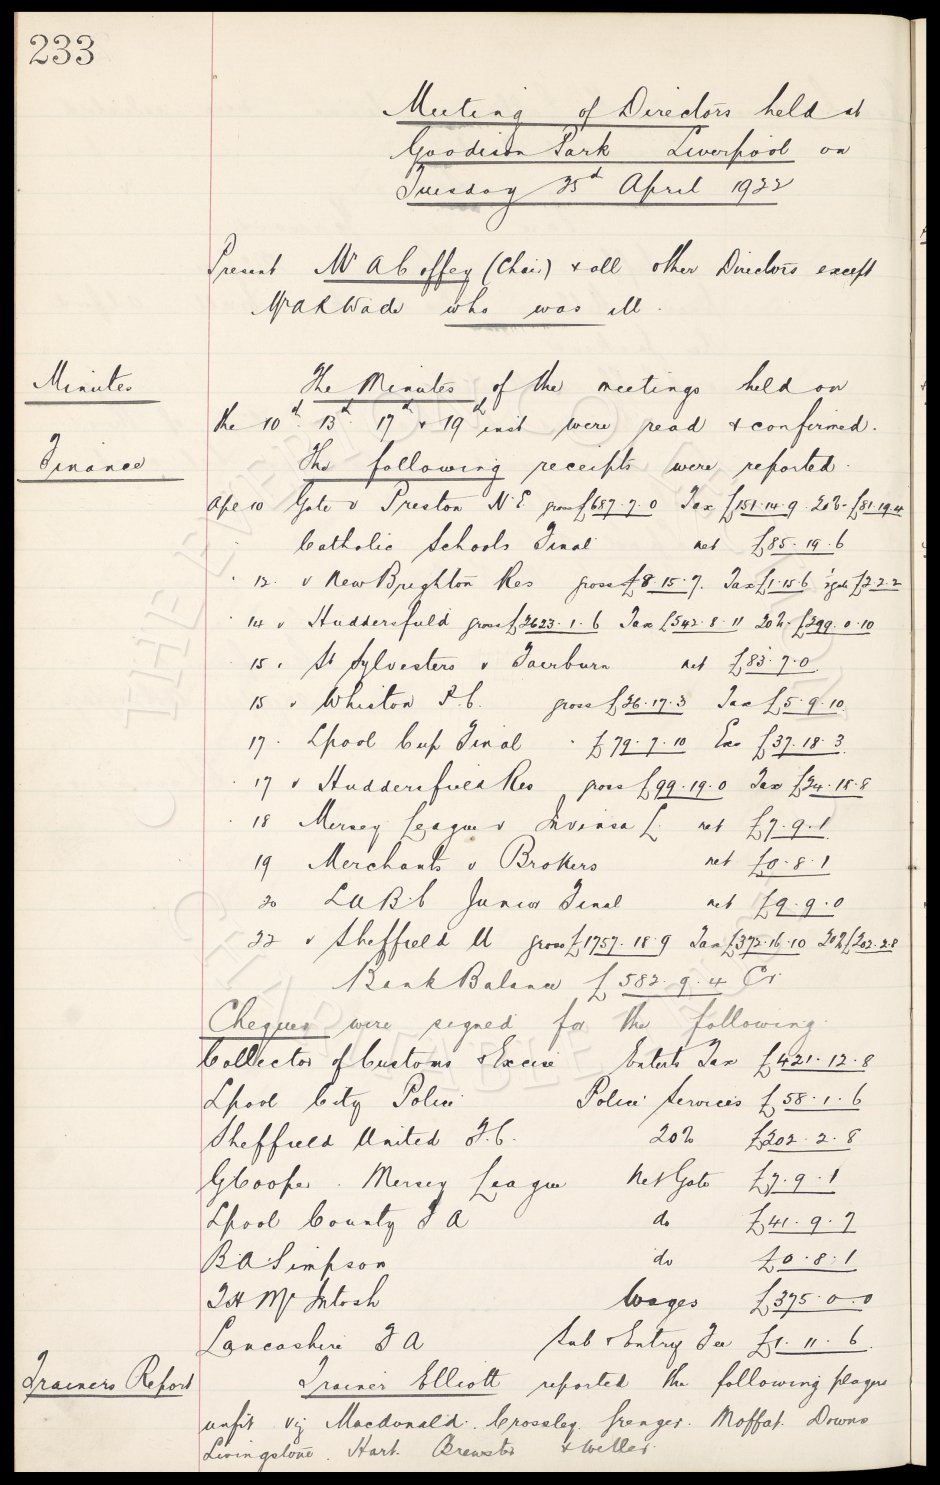 233
Meeting of Directors held at
Goodison Park Liverpool on
Tuesday 25d April 1922
Present Mr A Coffey (Chair) & all other Directors except
Mr A R Wade who was ill.
Minutes The Minutes of the meetings held on
the 10th 13th 17th & 19th inst were read & confirmed.
Finance The following receipts were reported.
Apl 10 Gate v Preston N.E. gross £687.7.0 Tax £151.14.9 20% £81.19.4
Catholic Schools Final net £85.19.6
12. v New Brighton Res gross £8.15.7. Tax £1.15.6 gate £2.2.2
14 v Huddersfield gross £2623.1.6 Tax £542.8.11 20% £299.0.10
15. St Sylvesters v Fairburn net £83.7.0
15 v Whiston P.C. gross £26.17.3 Tax £5.9.10
17. Lpool Cup Final £79.7.10 Exs £37.18.3
17 v Huddersfield Res gross £99.19.0 Tax £24.15.8
18 Mersey League v Invinsa L. net £7.9.1
19 Merchants v Brokers net £0.8.1
20 LUBC Junior Final net £9.9.0
22 v Sheffield U gross £1757.18.9 Tax £372.16.10 20% £202.2.8
Bank Balance £582.9.4 Cr
Cheques were signed for the following
Collector of Customs & Excise Enterts Tax £421.12.8
Lpool City Police Police Services £58.1.6
Sheffield United F.C. 20% £202.2.8
G Cooper. Mersey League Net Gate £7.9.1
Lpool County F A do £41.9.7
B.A. Simpson do £0.8.1
T H Mc Intosh Wages £375.0.0
Lancashire F A Sub & Entry Fee £1.11.6
Trainers Report Trainer Elliott reported the following players
unfit viz Macdonald. Crossley. Grenyer. Moffat. Downs
Livingstone. Hart. Brewster & Weller.
THE EVERTON COLLECTION
CHARITABLE TRUST